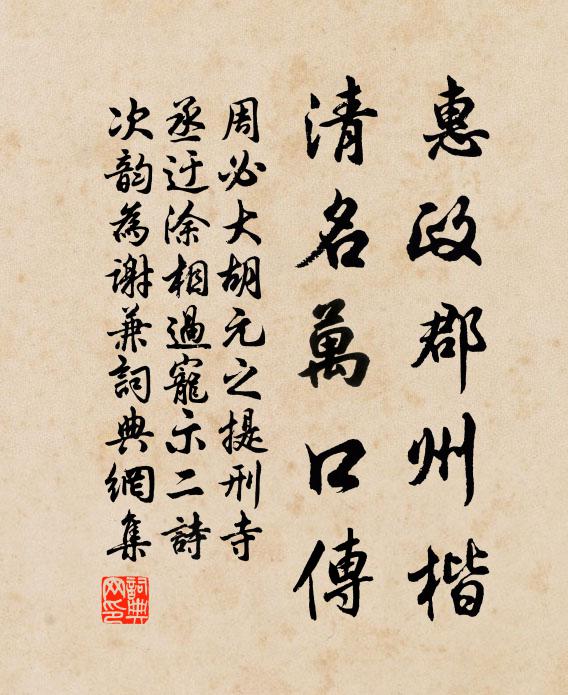 惠政郡州楷
清名萬口傳
周必大胡元之提刑寺
丞迂涂相過寵示二詩
次韵為謝兼詞典網集
詞典網印